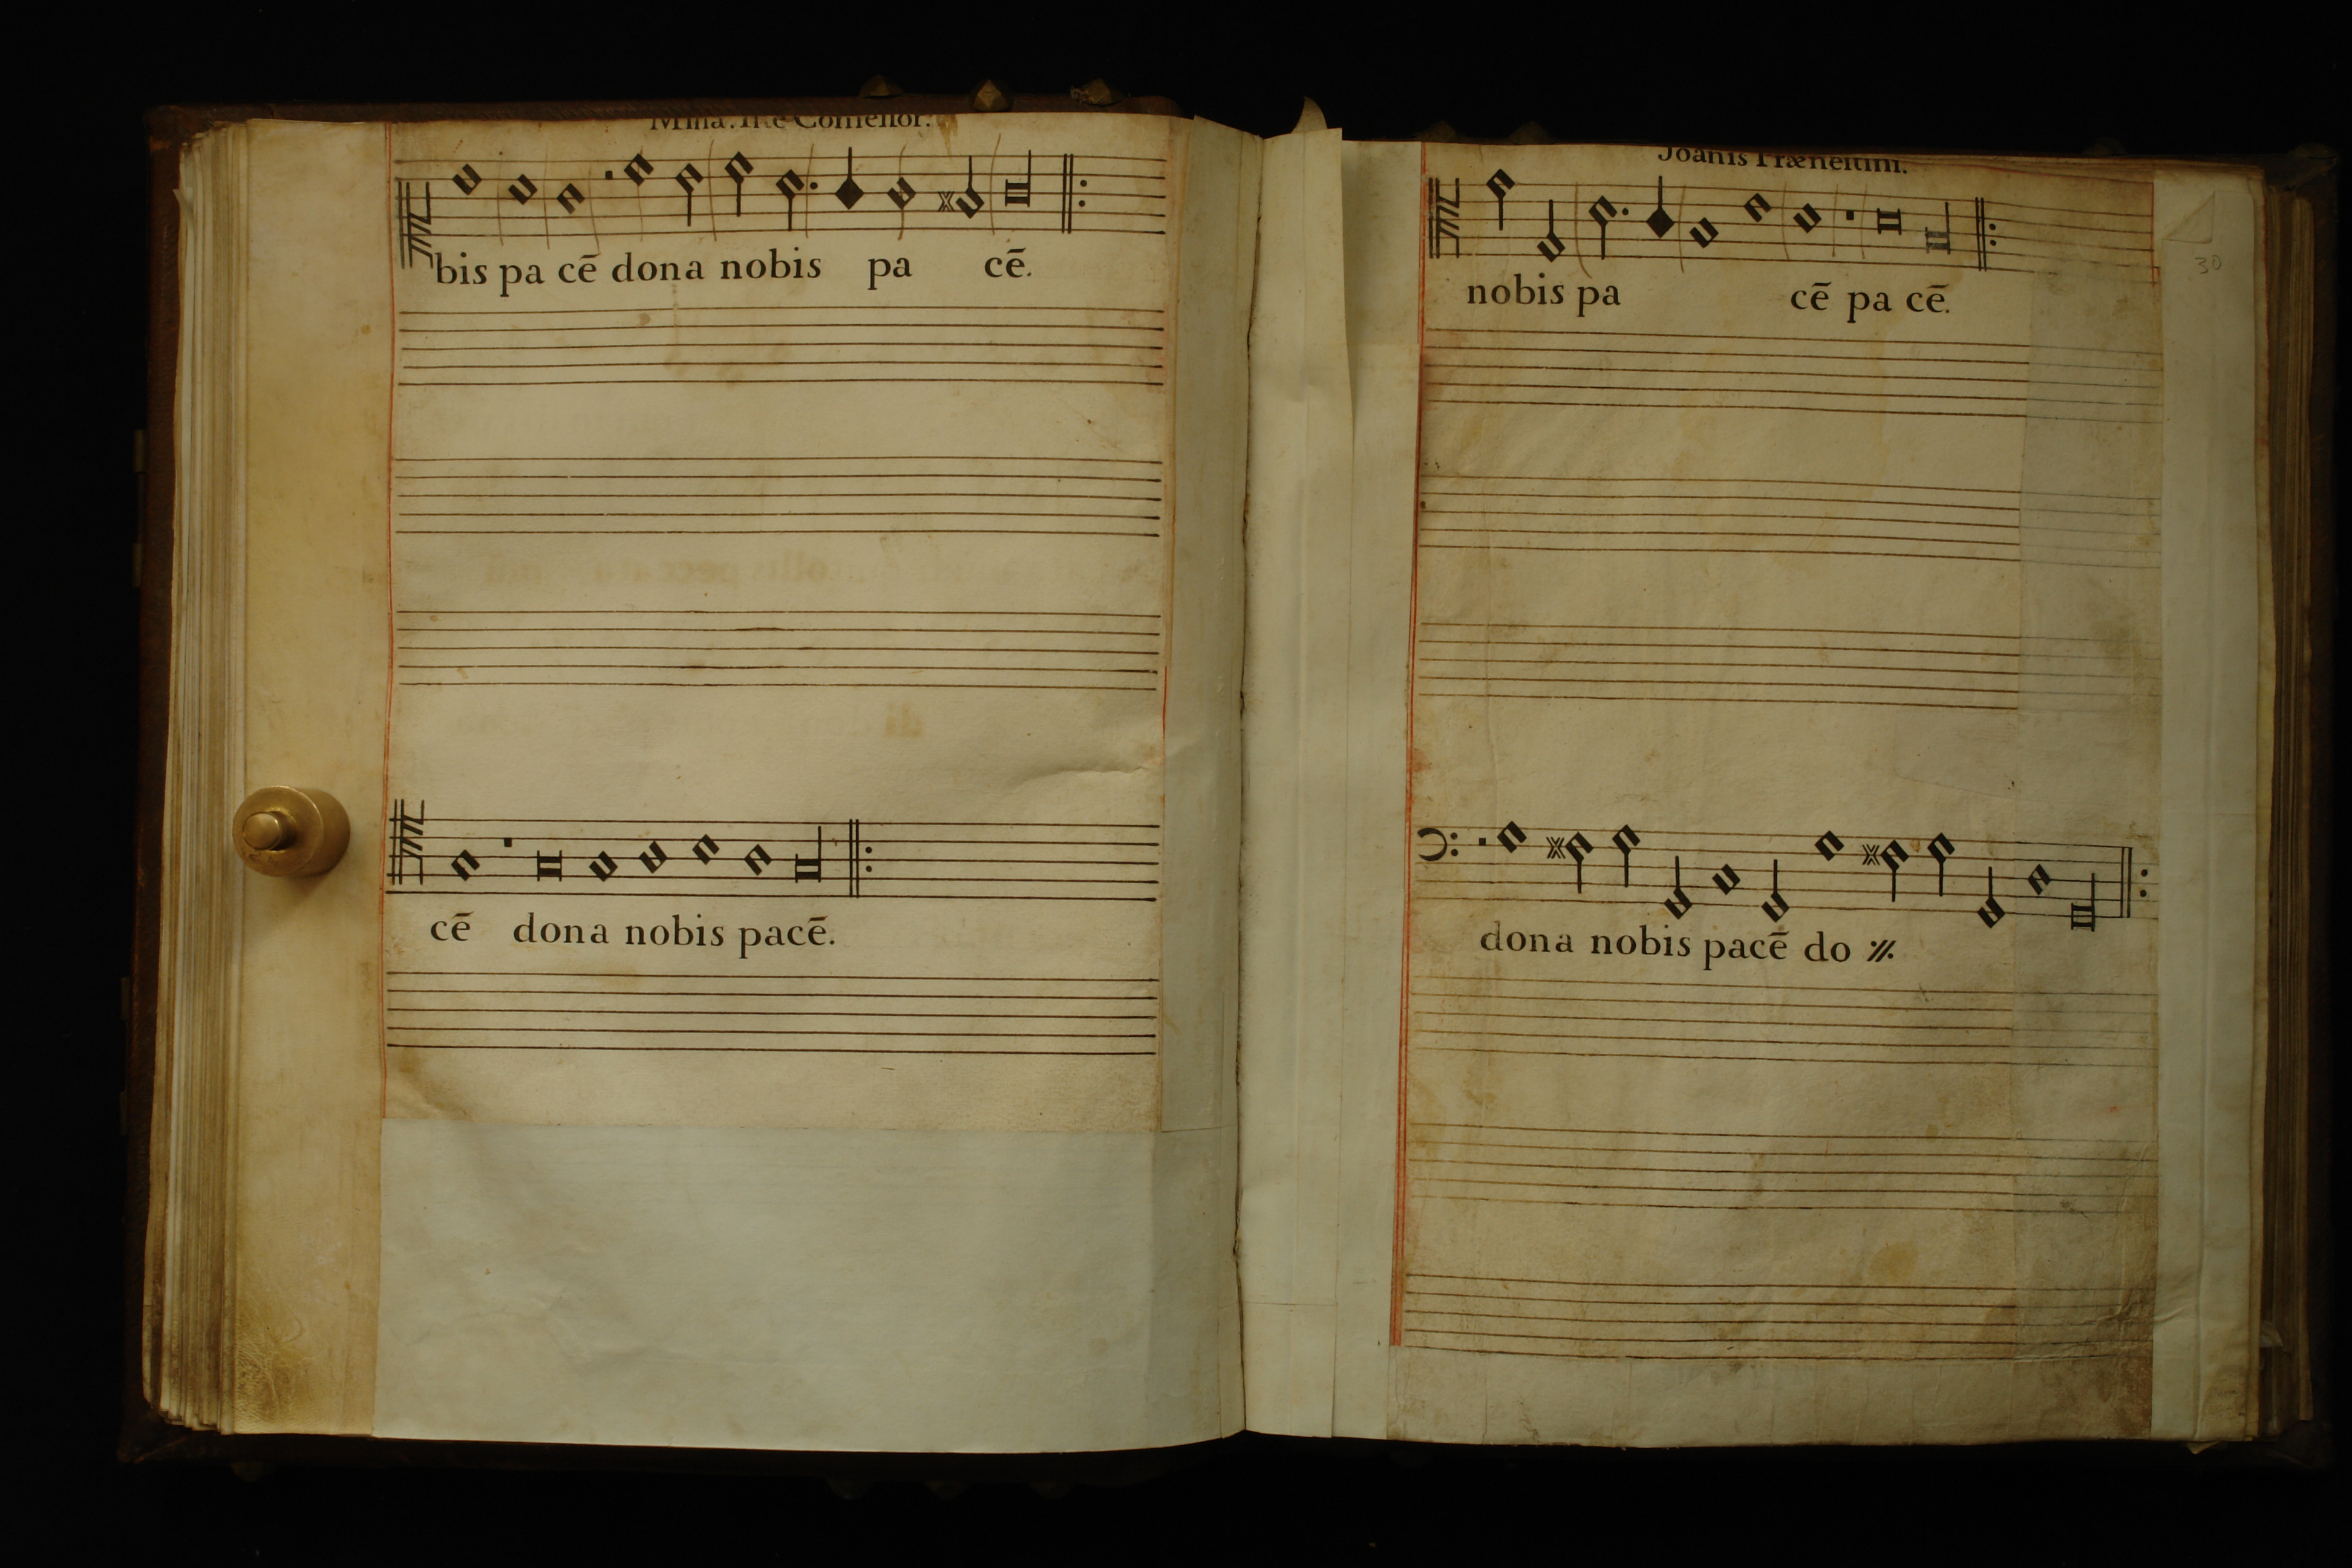 Missa. Iste Confessor.
bis pa cē dona nobis pa cē.
cē dona nobis pacē.
Joanis Prænestini.
30
nobis pa cē pa cē.
dona nobis pacē do ij.